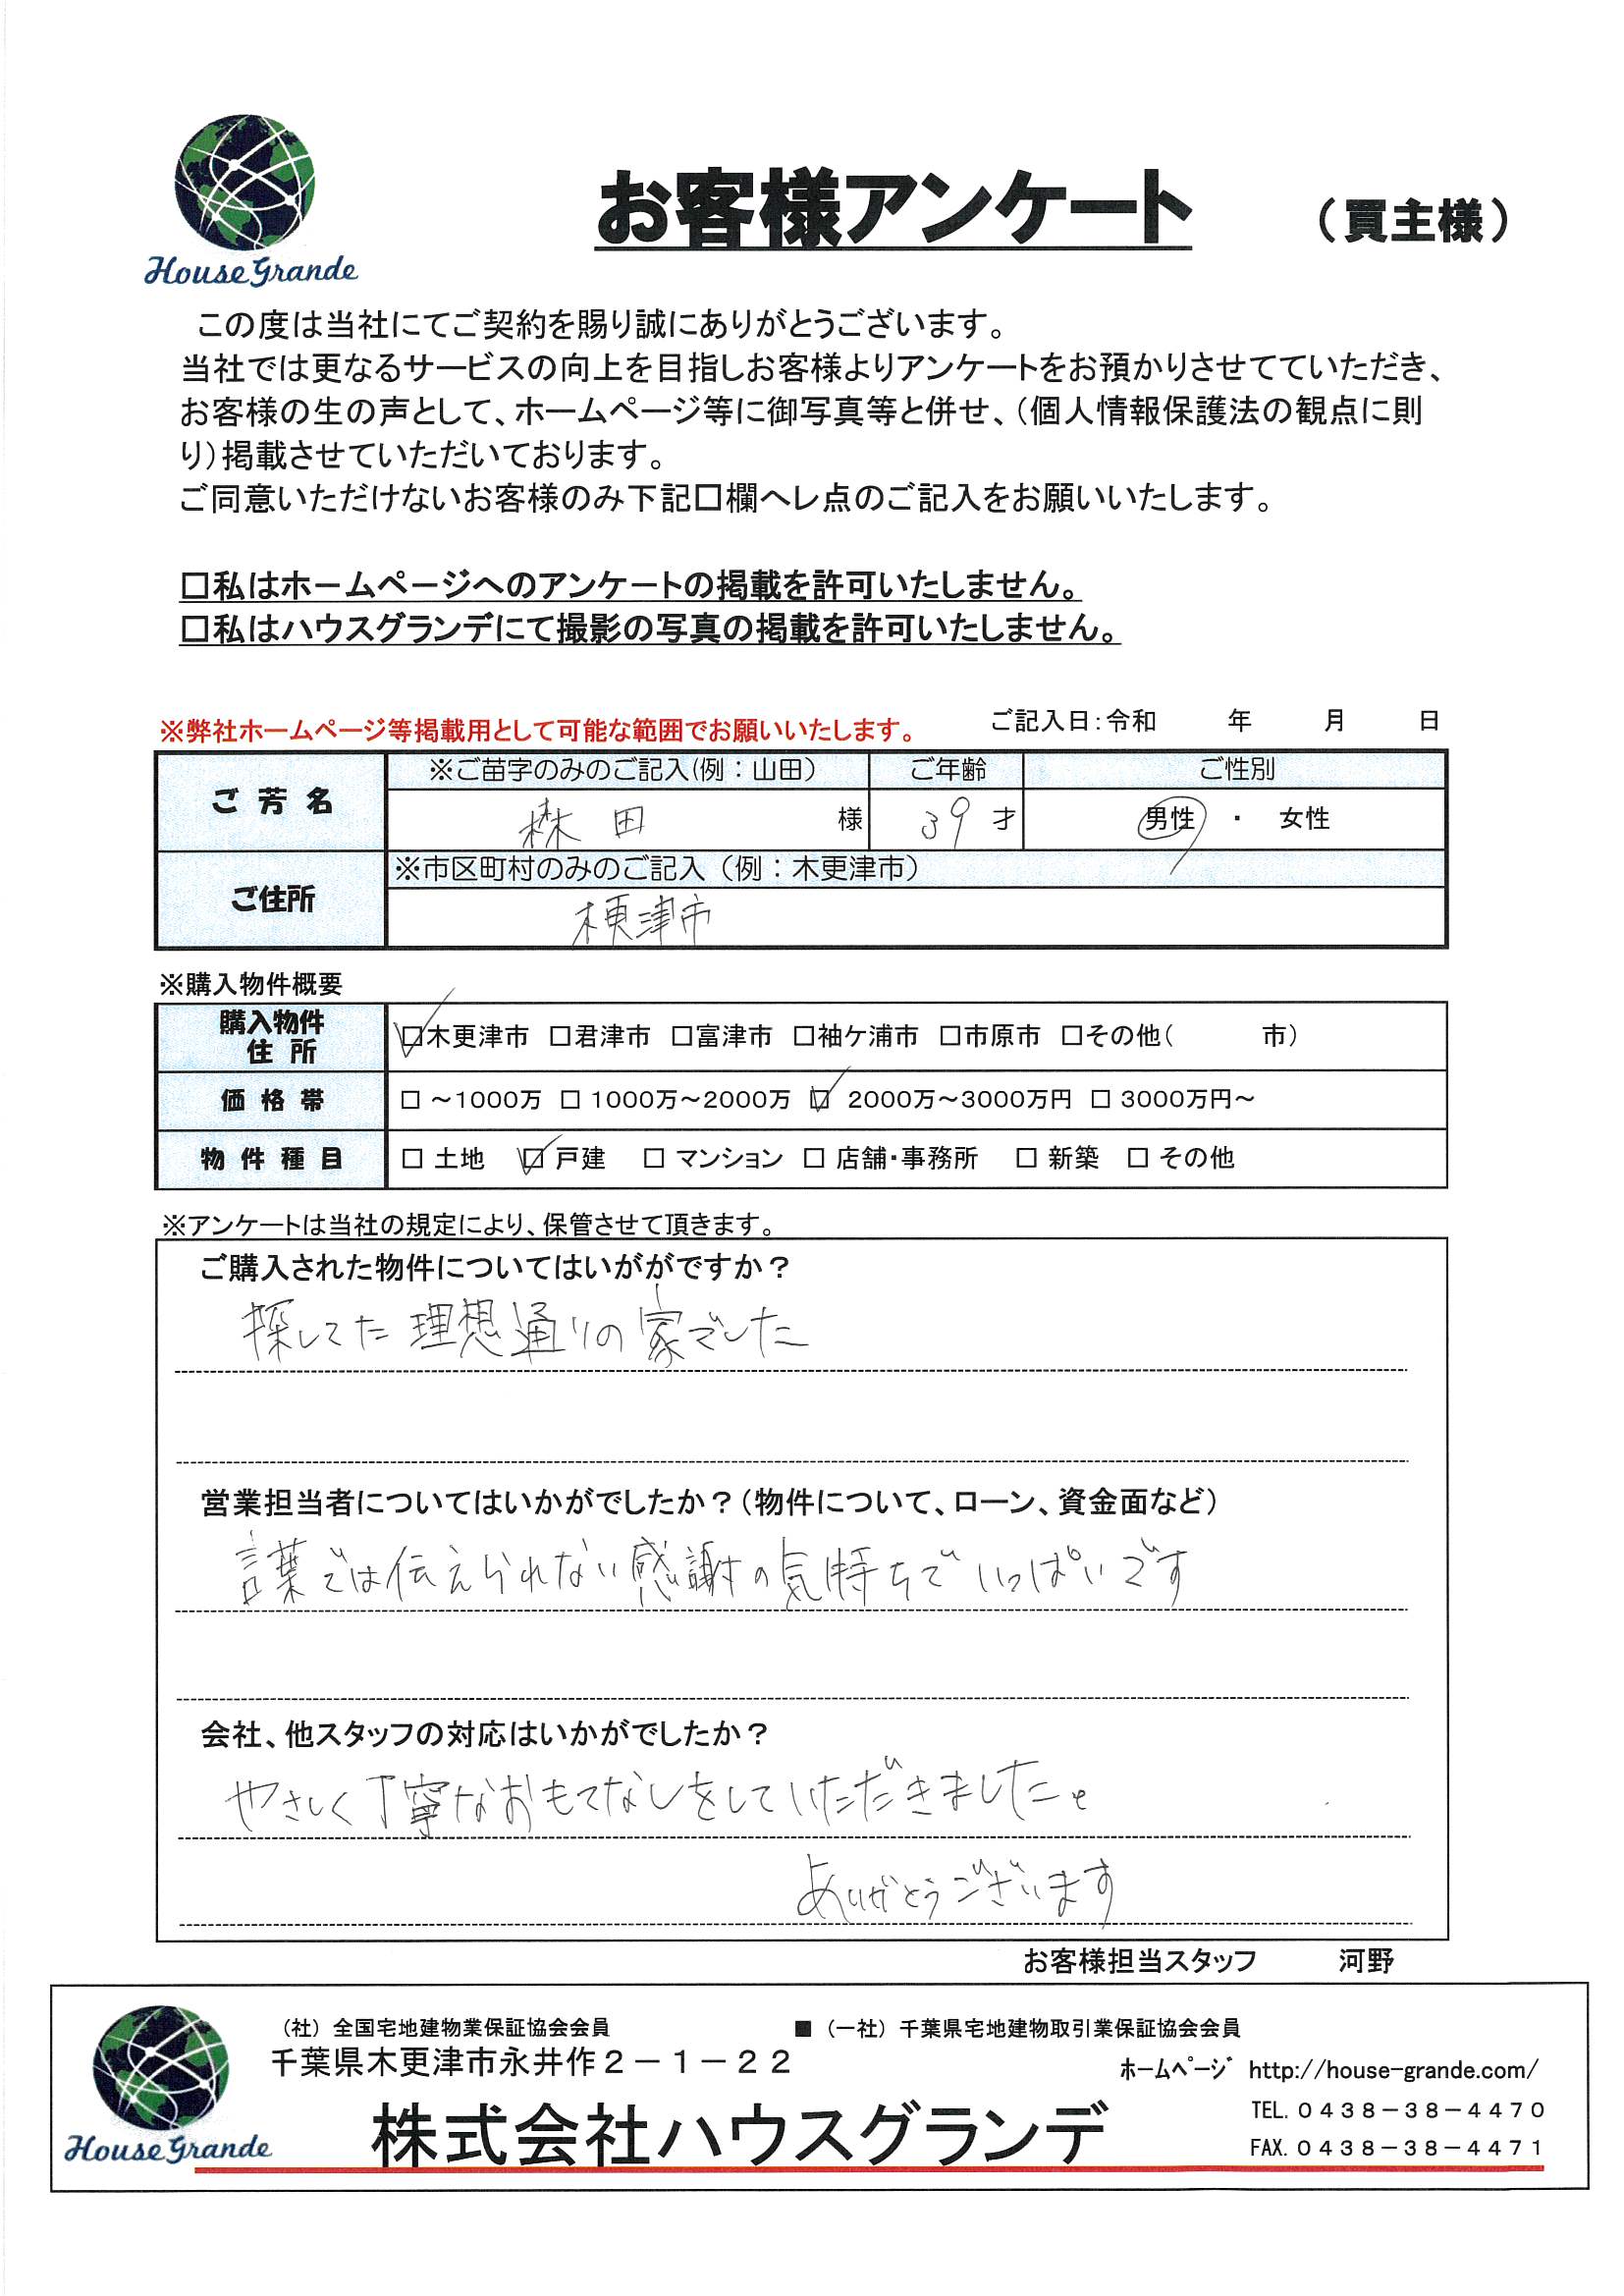 House Grande
お客様アンケート （買主様）
この度は当社にてご契約を賜り誠にありがとうございます。
当社では更なるサービスの向上を目指しお客様よりアンケートをお預かりさせてていただき、
お客様の生の声として、ホームページ等に御写真等と併せ、（個人情報保護法の観点に則
り）掲載させていただいております。
ご同意いただけないお客様のみ下記□欄へレ点のご記入をお願いいたします。
□私はホームページへのアンケートの掲載を許可いたしません。
□私はハウスグランデにて撮影の写真の掲載を許可いたしません。
※弊社ホームページ等掲載用として可能な範囲でお願いいたします。 ご記入日：令和 年 月 日
ご芳名 ※ご苗字のみのご記入（例：山田） ご年齢 ご性別
森田 様 39 才 男性 ・ 女性
ご住所 ※市区町村のみのご記入（例：木更津市）
木更津市
※購入物件概要
購入物件住所 ☑木更津市 □君津市 □富津市 □袖ケ浦市 □市原市 □その他（ 市）
価格帯 □ ～1000万 □ 1000万～2000万 ☑ 2000万～3000万円 □ 3000万円～
物件種目 □ 土地 ☑ 戸建 □ マンション □ 店舗・事務所 □ 新築 □ その他
※アンケートは当社の規定により、保管させて頂きます。
ご購入された物件についてはいががですか？
探してた理想通りの家でした
営業担当者についてはいかがでしたか？（物件について、ローン、資金面など）
言葉では伝えられない感謝の気持ちでいっぱいです
会社、他スタッフの対応はいかがでしたか？
やさしく丁寧なおもてなしをしていただきました。
ありがとうございます
お客様担当スタッフ 河野
（社）全国宅地建物業保証協会会員 ■（一社）千葉県宅地建物取引業保証協会会員
千葉県木更津市永井作２－１－２２
ホームページ http://house-grande.com/
株式会社ハウスグランデ
TEL.０４３８－３８－４４７０
FAX.０４３８－３８－４４７１
House Grande